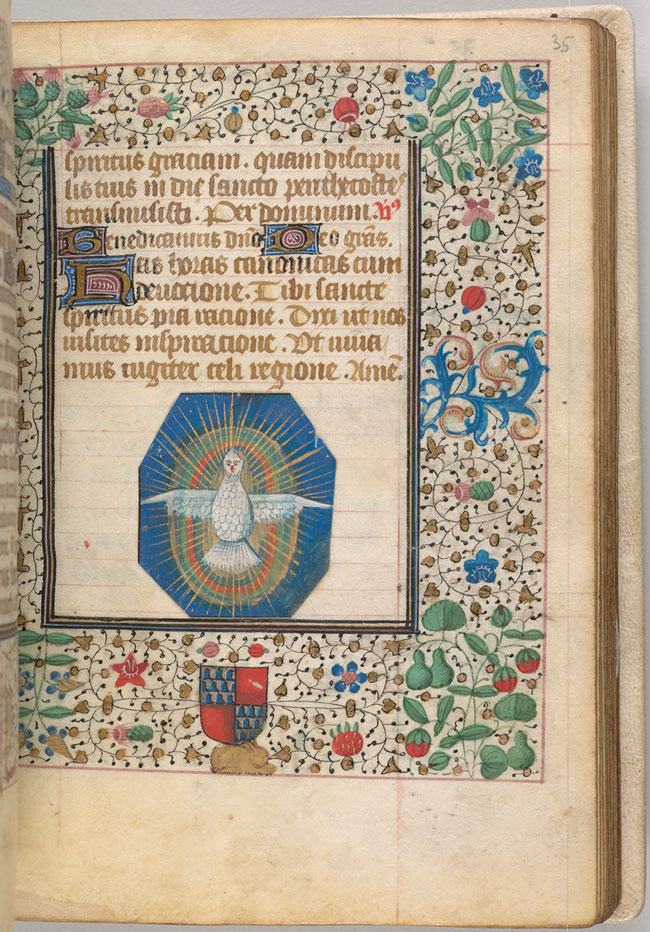 35
spiritus graciam. quam discipu
lis tuis in die sancto penthecostes
transmisisti. Per dominum.
Benedicamus dño Deo grãs.
Has horas canonicas cum
devocione. Tibi sancte
spiritus pia racione. Dixi ut nos
visites inspiracione. Ut viva
mus iugiter celi regione. Amẽ.